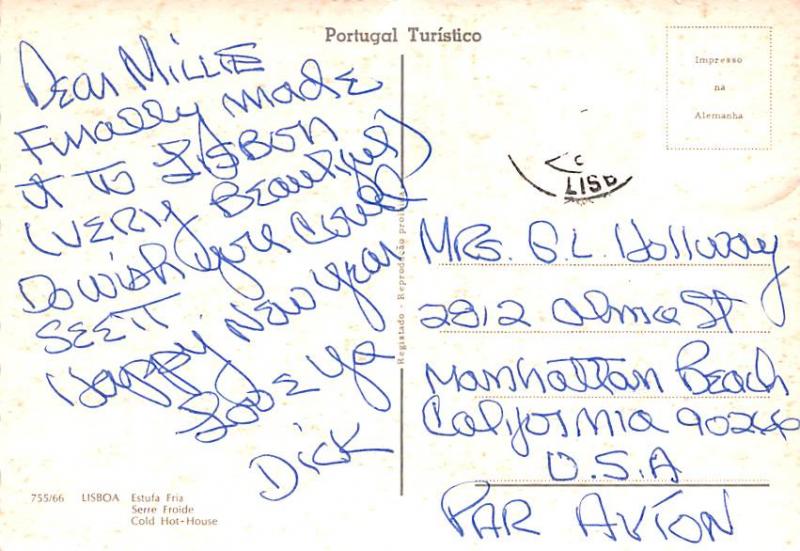 Portugal Turístico
Dear Millie
Finally made
it to Lisbon
(very beautiful)
Do wish you could
see it.
Happy New Year
Love Ya
Dick
755/66 LISBOA Estufa Fria
Serre Froide
Cold Hot-House
Registado - Reprodução proibida
Impresso
na
Alemanha
LISB
Mrs. G.L. Holloway
2812 Alma St
Manhattan Beach
California 90266
U.S.A
PAR AVION